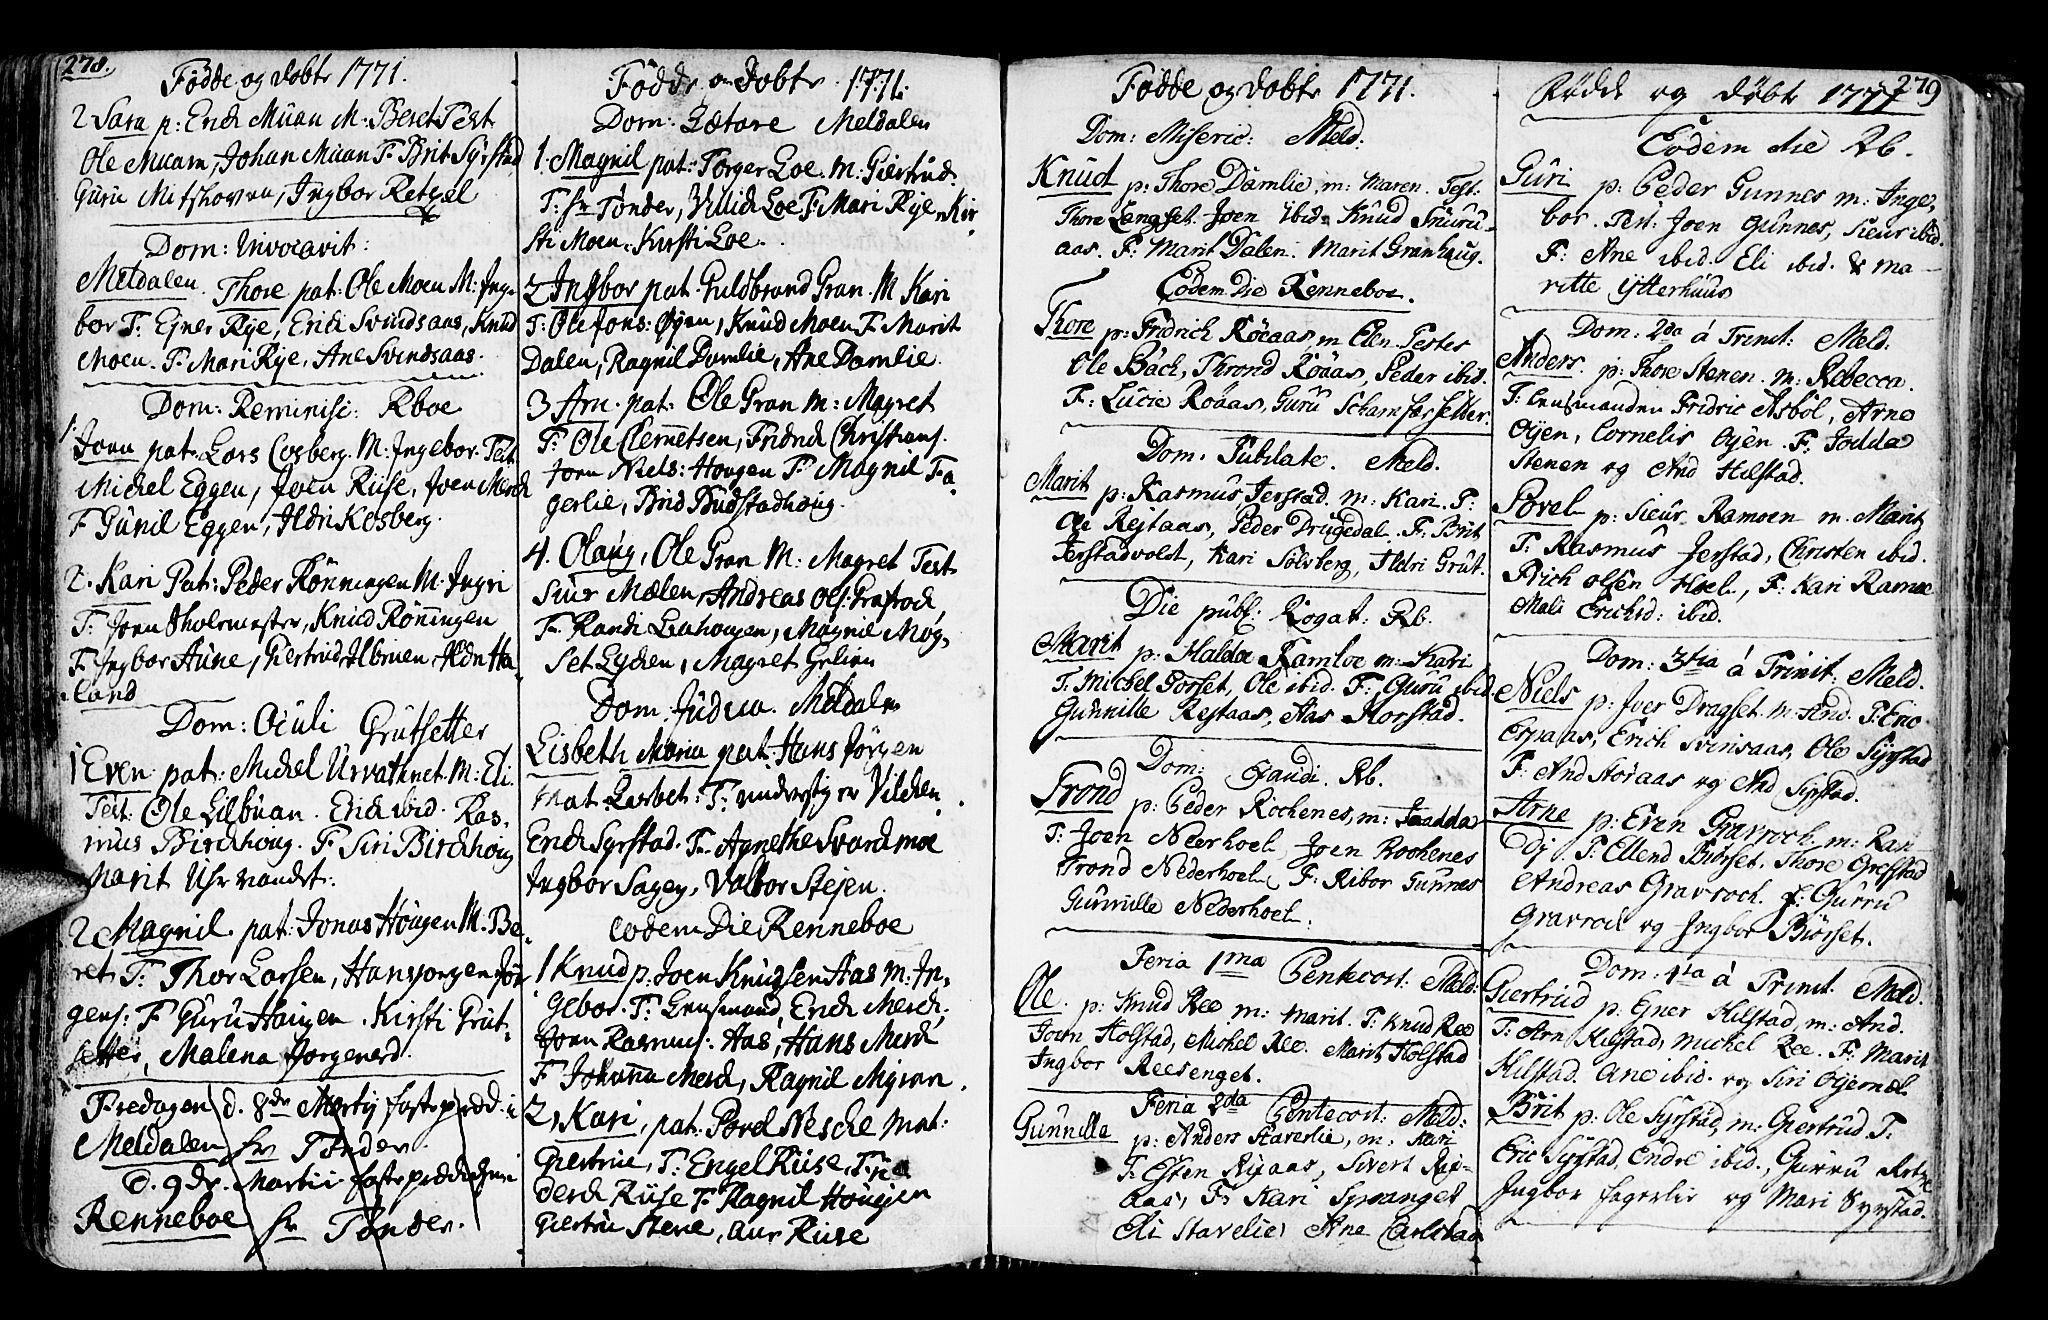 278.
Födde og döbte 1771.
2 Sara p: Erich Muan M: Beret Test
Ole Muan, Johan Muan F. Brit Syrstad
Guru Mitshoven, Ingbor Retzel
Dom: Invocavit:
Meldalen. Thore pat: Ole Moen M: Ing-
bor T: Ejner Rye, Erich Svindsaas, Knud
Moen. F. Mari Rye, Ane Svindsaas.
Dom: Reminisc: Rboe
1. Joen pat. Lars Cosberg. M: Ingebor Test
Michel Eggen, Joen Riise, Joen Merch
F Gunil Eggen, Ildri Kosberg.
2. Kari Pat: Peder Rönningen M: Ingri
T: Joen Skolemester, Knud Rönningen
F. Ingbor Aune, Giertrud Ilbruen, Ildri Ha-
land
Dom: Oculi Grutsetter
1 Even pat: Michel Urvathnet. M: Eli
Test. Ole Lilbuan. Erich ibid. Ras-
mus Birchhoug. F Siri Birchhoug
Marit Uhrvandet.
2 Magnil. pat: Jonas Hougen M. Be-
ret T: Thor Larsen, Hansjörgen Jör-
gens: F Guru Haugen. Kirsti Grut-
setter, Malena Jörgenssd.
Fredagen d. 8de Martij fastepræd: i
Meldalen hr Tönder.
d. 9de Martii fasteprædichen i
Renneboe hr Tönder.
Födde og döbte 1771.
Dom: Lætare Meldalen
1. Magnil pat: Torger Loe. M: Giertrud
T: hr Tönder, Loe F. Mari Rye, Kir-
sti Moen, Kirsti Loe.
2 Ingbor pat. Guldbrand Gran. M Kari
T: Ole Jons: Öyen, Knud Moen F. Marit
Dalen, Ragnil Damlie, Ane Damlie.
3 Arn. pat: Ole Gran M: Magret
T: Ole Clemetsen, Fridrich Christians.
Joen Niels: Hougen F. Magnil Fa-
gerlie, Brid Budstadhoug.
4. Olaug, Ole Gran M: Magret Test
Siur Mælen, Andreas Ols: Grafroch,
F. Randi Louhougen, Magnil Mog-
set Lychen, Magret Grelien
Dom: Judica. Meldalen
Lisbeth Maria pat: Hans Jörgen
mat Lisbet: T: Vilchen
Erich Syrstad. F. Agnethe Svardmoe
Ingbor Sagen, Valbor Stejen.
eodem Die Renneboe
1 Knud p: Joen Knudsen Aas M: In-
gebor. T: Lensmand, Erich Merch,
Joen Rasmus: Aas, Hans Merch
F Johanna Merch, Ragnil Myran.
2, Kari, pat: Povel Nesche mat:
Giertrue, T: Engel Riise,
derch Riise F. Ragnil Hougen
Giertrue Stene, Aur Riise
Födde og döbte 1771.
Dom: Miseric: Meld:
Knud p: Thore Damlie, m: Maren. Test:
Thore Langset Joen ibid. Knud Snuru-
aas. F: Marit Dalen. Marit Granhaug.
Eodem Die Renneboe.
Thore p: Fridrich Röeaas, m Elen. Testes
Ole Bach, Thrond Röaas, Peder ibid.
F: Lucie Röaas, Guru Schamfærsetter.
Dom. Jubilate. Meld.
Marit p: Rasmus Jerstad. m: Kari. T:
Ole Rejtaas, Peder Drugedal. F: Brit
Jerstadvoldt, Kari Sölvberg, Ildri Grut.
Die publ. Rogat: Rb.
Marit p: Haldor Ramloe m: Kari
T: Michel Gorset, Ole ibid. F: Guru ibid.
Gunnille Rejtaas, Aas Korstad.
Dom: Exaudi. Rb.
Trond p: Peder Rochenes, m: Joadda
T: Joen Neerhoel, Joen Rochenes
Trond Nederhoel, F: Ribor Gunnes
Gunnille Nederhoel.
Feria 1ma Pentecost: Meld:
Ole. p: Knud Ree m: Marit. T: Knud Ree
Joen Holstad, Michel Ree. Marit Holstad
Ingbor Reesenget.
Feria 2da Pentecost: Meld:
Gunnille p: Anders Staverlie, m: Kari
T: Esten Rijaas, Sivert Rij-
aas, F: Kari Spranget
Eli Stavelie, Ane Carlstad
279
Födde og döbte 1771
Eodem die Rb.
Guri p: Peder Gunnes m: Inge-
bor. Test: Joen Gunnes, Sieur ibid.
F: Ane ibid. Eli ibid. & Ma-
ritte Ytterhuus
Dom: 2da á Trinit: Meld:
Anders. p: Thore Stenen. m: Rebecca.
T: Lensmanden Fridric Asböl, Arne
Öyen, Cornelis Öyen. F: Jodda
Stenen og And Hilstad.
Povel p: Sieur Ramoen m. Marit
T: Rasmus Jerstad, Christen ibid.
Erich Olsen Hoel, F: Kari Ramoe
Mali Erichsd: ibid.
Dom: 3tia á Trinit: Meld.
Niels p: Iver Dragset. m. And. T: Eric
Espaas, Erich Svinsaas, Ole Syrstad
F: And Storaas og And Syrstad.
Arne p: Even Gravroch, m: Ran-
di T: Ellend Biörset. Thore Grefstad
Andreas Gravroch. f: Gurru
Gravroch og Ingbor Biörset.
Dom: 4ta á Trinit. Meld.
Giertrud p: Ejner Hilstad, m: And.
T: Arn Hilstad, Michel Ree. F: Marit
Hilstad. Ane ibid. og Siri Öyemæl
Brit p: Ole Syrstad, m: Giertrud T:
Eric Syrstad, Endre ibid., Gurru
Ingbor Fagerlie og Mari Syrstad.